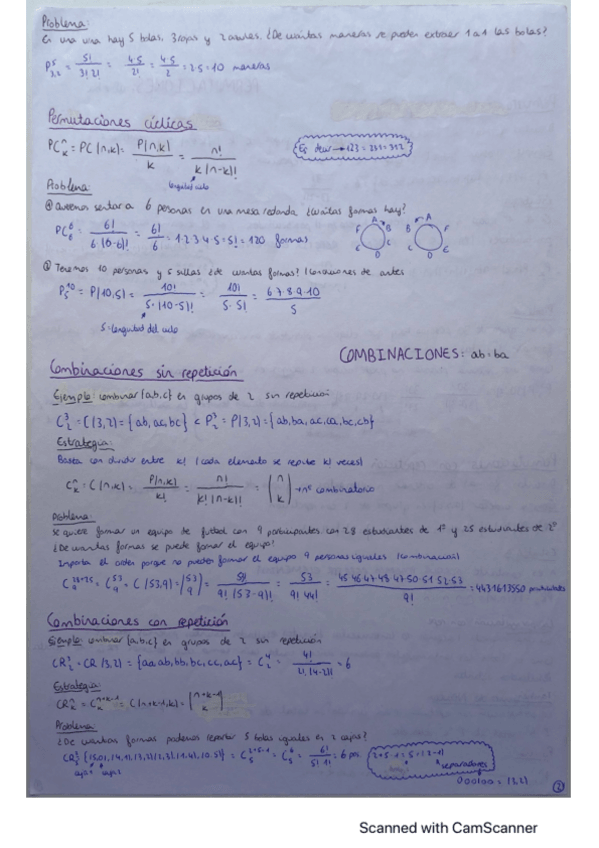 Problema:
En una urna hay 5 bolas, 3 rojas y 2 azules. ¿De cuántas maneras se pueden extraer 1 a 1 las bolas?
P⁵₃,₂ = 5!/3!2! = 4·5/2! = 4·5/2 = 2·5 = 10 maneras
Permutaciones cíclicas
PCⁿₖ = PC(n,k) = P(n,k)/k = n!/k(n-k)!
Es decir → 123 = 231 = 312
longitud ciclo
Problema:
Queremos sentar a 6 personas en una mesa redonda ¿cuántas formas hay?
PC⁶₆ = 6!/6(6-6)! = 6!/6 = 1·2·3·4·5 = 5! = 120 formas
A B C D E F
A B C D E F
Tenemos 10 personas y 5 sillas ¿de cuantas formas?
P¹⁰₅ = P(10,5) = 10!/5·(10-5)! = 10!/5·5! = 6·7·8·9·10/5
5 = longitud del ciclo
COMBINACIONES: ab = ba
Combinaciones sin repetición
Ejemplo: combinar {a,b,c} en grupos de 2 sin repetición
C³₂ = C(3,2) = {ab, ac, bc} < P³₂ = P(3,2) = {ab, ba, ac, ca, bc, cb}
Estrategia:
Basta con dividir entre k! (cada elemento se repite k! veces)
Cⁿₖ = C(n,k) = P(n,k)/k! = n!/k!(n-k)! = (n k) → nº combinatorio
Problema:
Se quiere formar un equipo de futbol con 9 participantes con 28 estudiantes de 1º y 25 estudiantes de 2º
¿De cuantas formas se puede formar el equipo?
Importa el orden porque no pueden formar el equipo 9 personas iguales (combinación)
C²⁸⁺²⁵₉ = C⁵³₉ = C(53,9) = (53 9) = 9!(53-9)! = 53/9!44! = 45·46·47·48·49·50·51·52·53/9! = 4431613550
Combinaciones con repetición
Ejemplo: combinar {a,b,c} en grupos de 2 sin repetición
CR³₂ = CR(3,2) = {aa, ab, bb, bc, cc, ac} = C⁴₂ = 4!/2!(4-2)! = 6
Estrategia:
CRⁿₖ = Cⁿ⁺ᵏ⁻¹ₖ = C(n+k-1,k) = (n+k-1 k)
Problema:
¿De cuantas formas podemos repartir 5 bolas iguales en 2 cajas?
{(5,0), (4,1), (3,2), (2,3), (1,4), (0,5)} = C²⁺⁵⁻¹₅ = C⁶₅ = 6!/5!1! = 6
caja 1 caja 2
2+5-1 = 5+(2-1)
separadores
Scanned with CamScanner